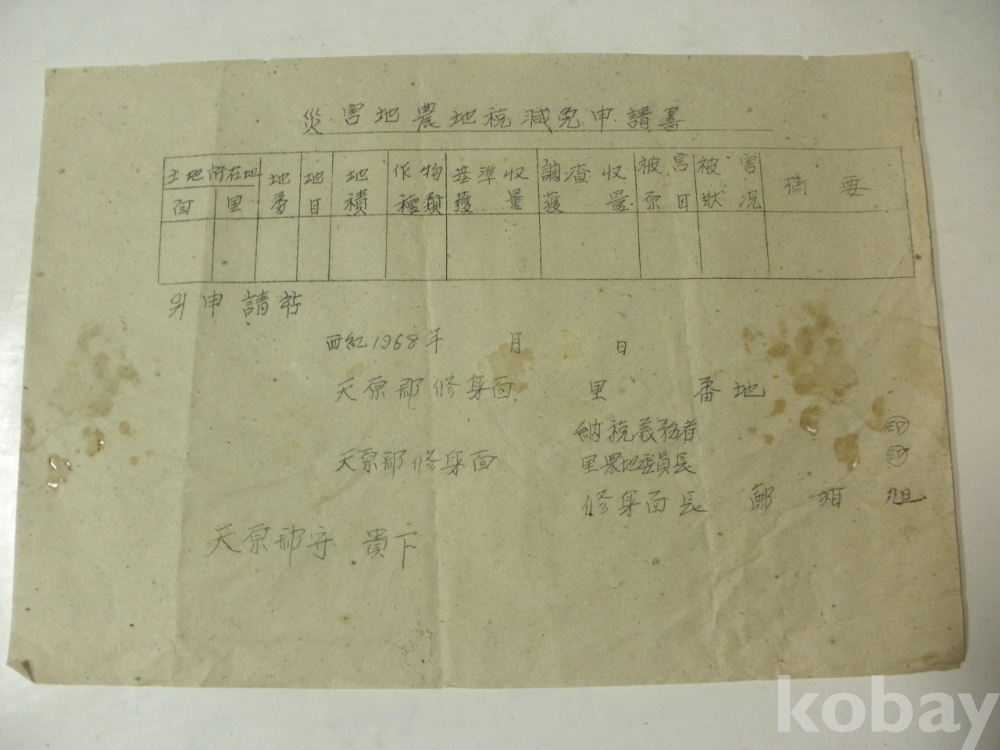 災害地農地税減免申請書
土地所在地 地 地 地 作物 基準收 調査收 被害 被害 摘要
面 里 番 目 積 種類 穫量 穫量 原因 狀況
위 申請함
西紀1968年 月 日
天原郡修身面 里 番地
納税義務者 印
天原郡修身面 里農地委員長 印
修身面長 鄭 旭
天原郡守 貴下
kobay